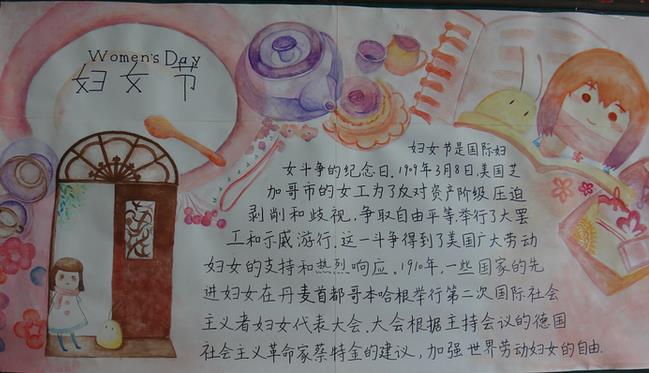 Women's Day
妇女节
妇女节是国际妇
女斗争的纪念日.1909年3月8日,美国芝
加哥市的女工为了反对资产阶级压迫
剥削和歧视,争取自由平等,举行了大罢
工和示威游行.这一斗争得到了美国广大劳动
妇女的支持和热烈响应.1910年,一些国家的先
进妇女在丹麦首都哥本哈根举行第二次国际社会
主义者妇女代表大会.大会根据主持会议的德国
社会主义革命家蔡特金的建议,加强世界劳动妇女的自由.